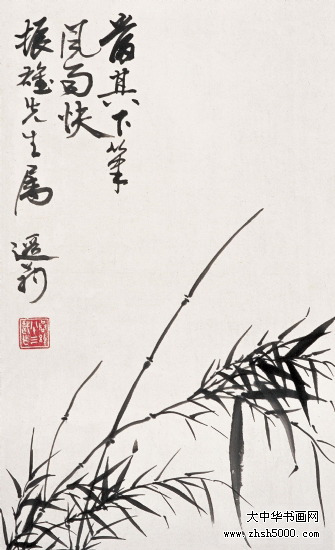 當其下筆
風雨快
振雄先生属
遐翁
大中华书画网
www.zhsh5000.com